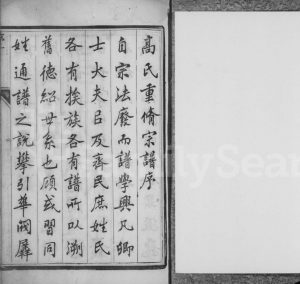 高氏重脩宗譜序
自宗法廢而譜學興凡卿
士大夫以及齊民庶姓氏
各有族族各有譜所以溯
舊德紹世系也顧或習同
姓通譜之說攀引華閥